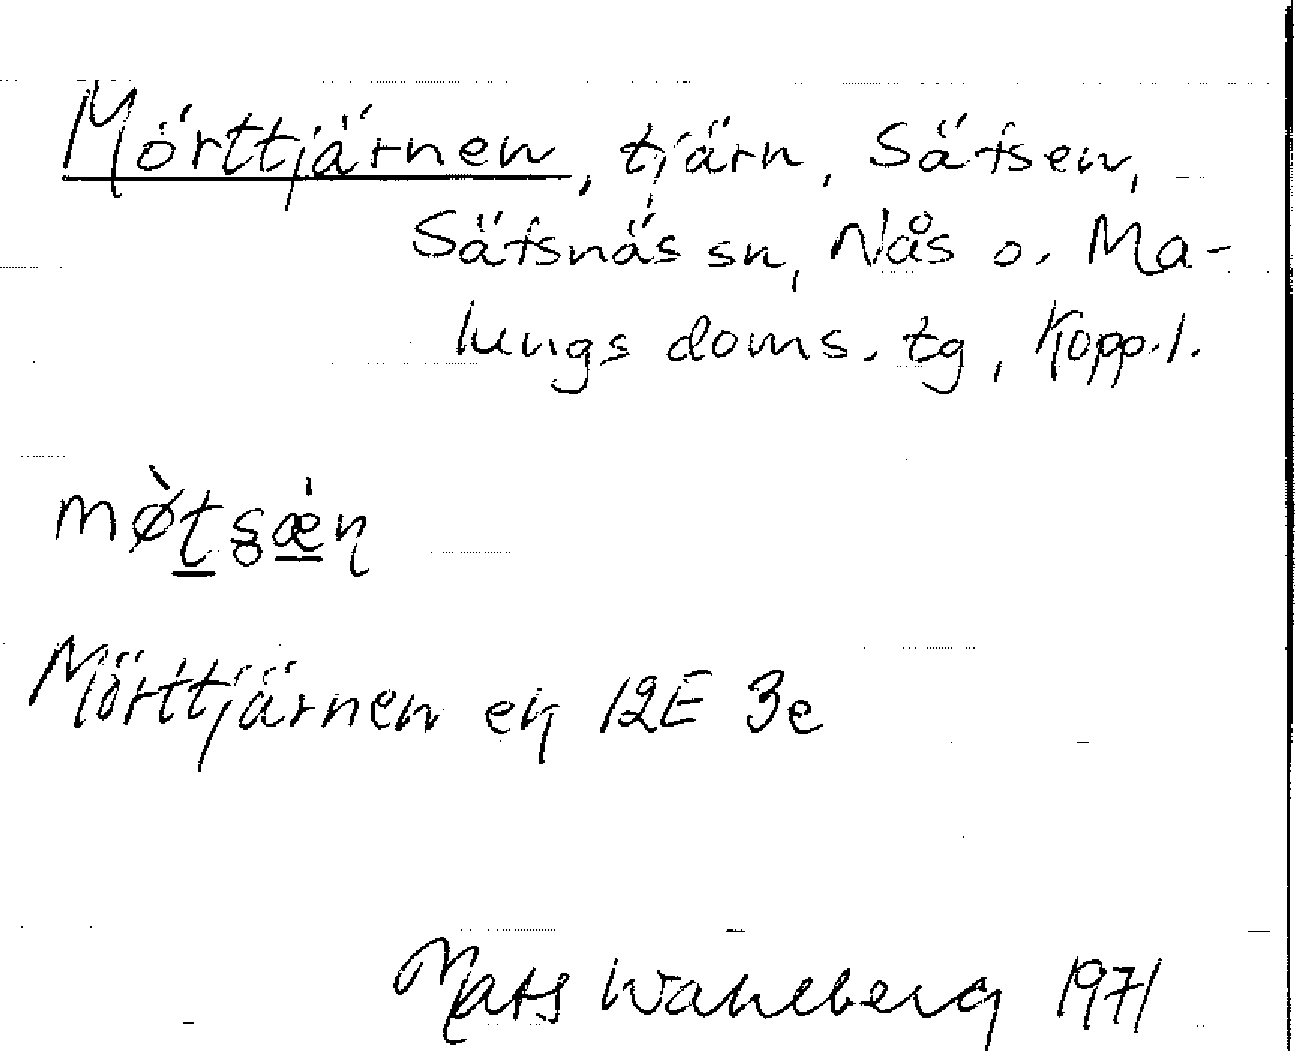 Mörttjärnen, tjärn, Säfsen,
Säfsnäs sn, Nås o. Ma-
lungs doms. tg, Kopp. l.
Mörttjärnen ek 12E 3e
Mats Wahlberg 1971